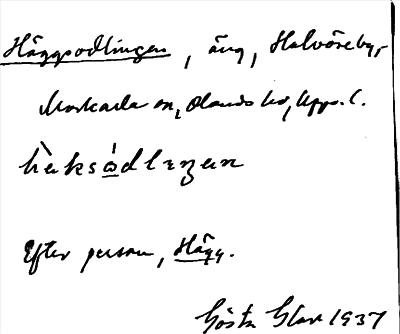 Häggsodlingen, äng, Halvöreby,
Morkarla sn, Olands hd, Upps. l.
hàksò̱dleŋan
Efter person, Hägg.
Gösta 1937